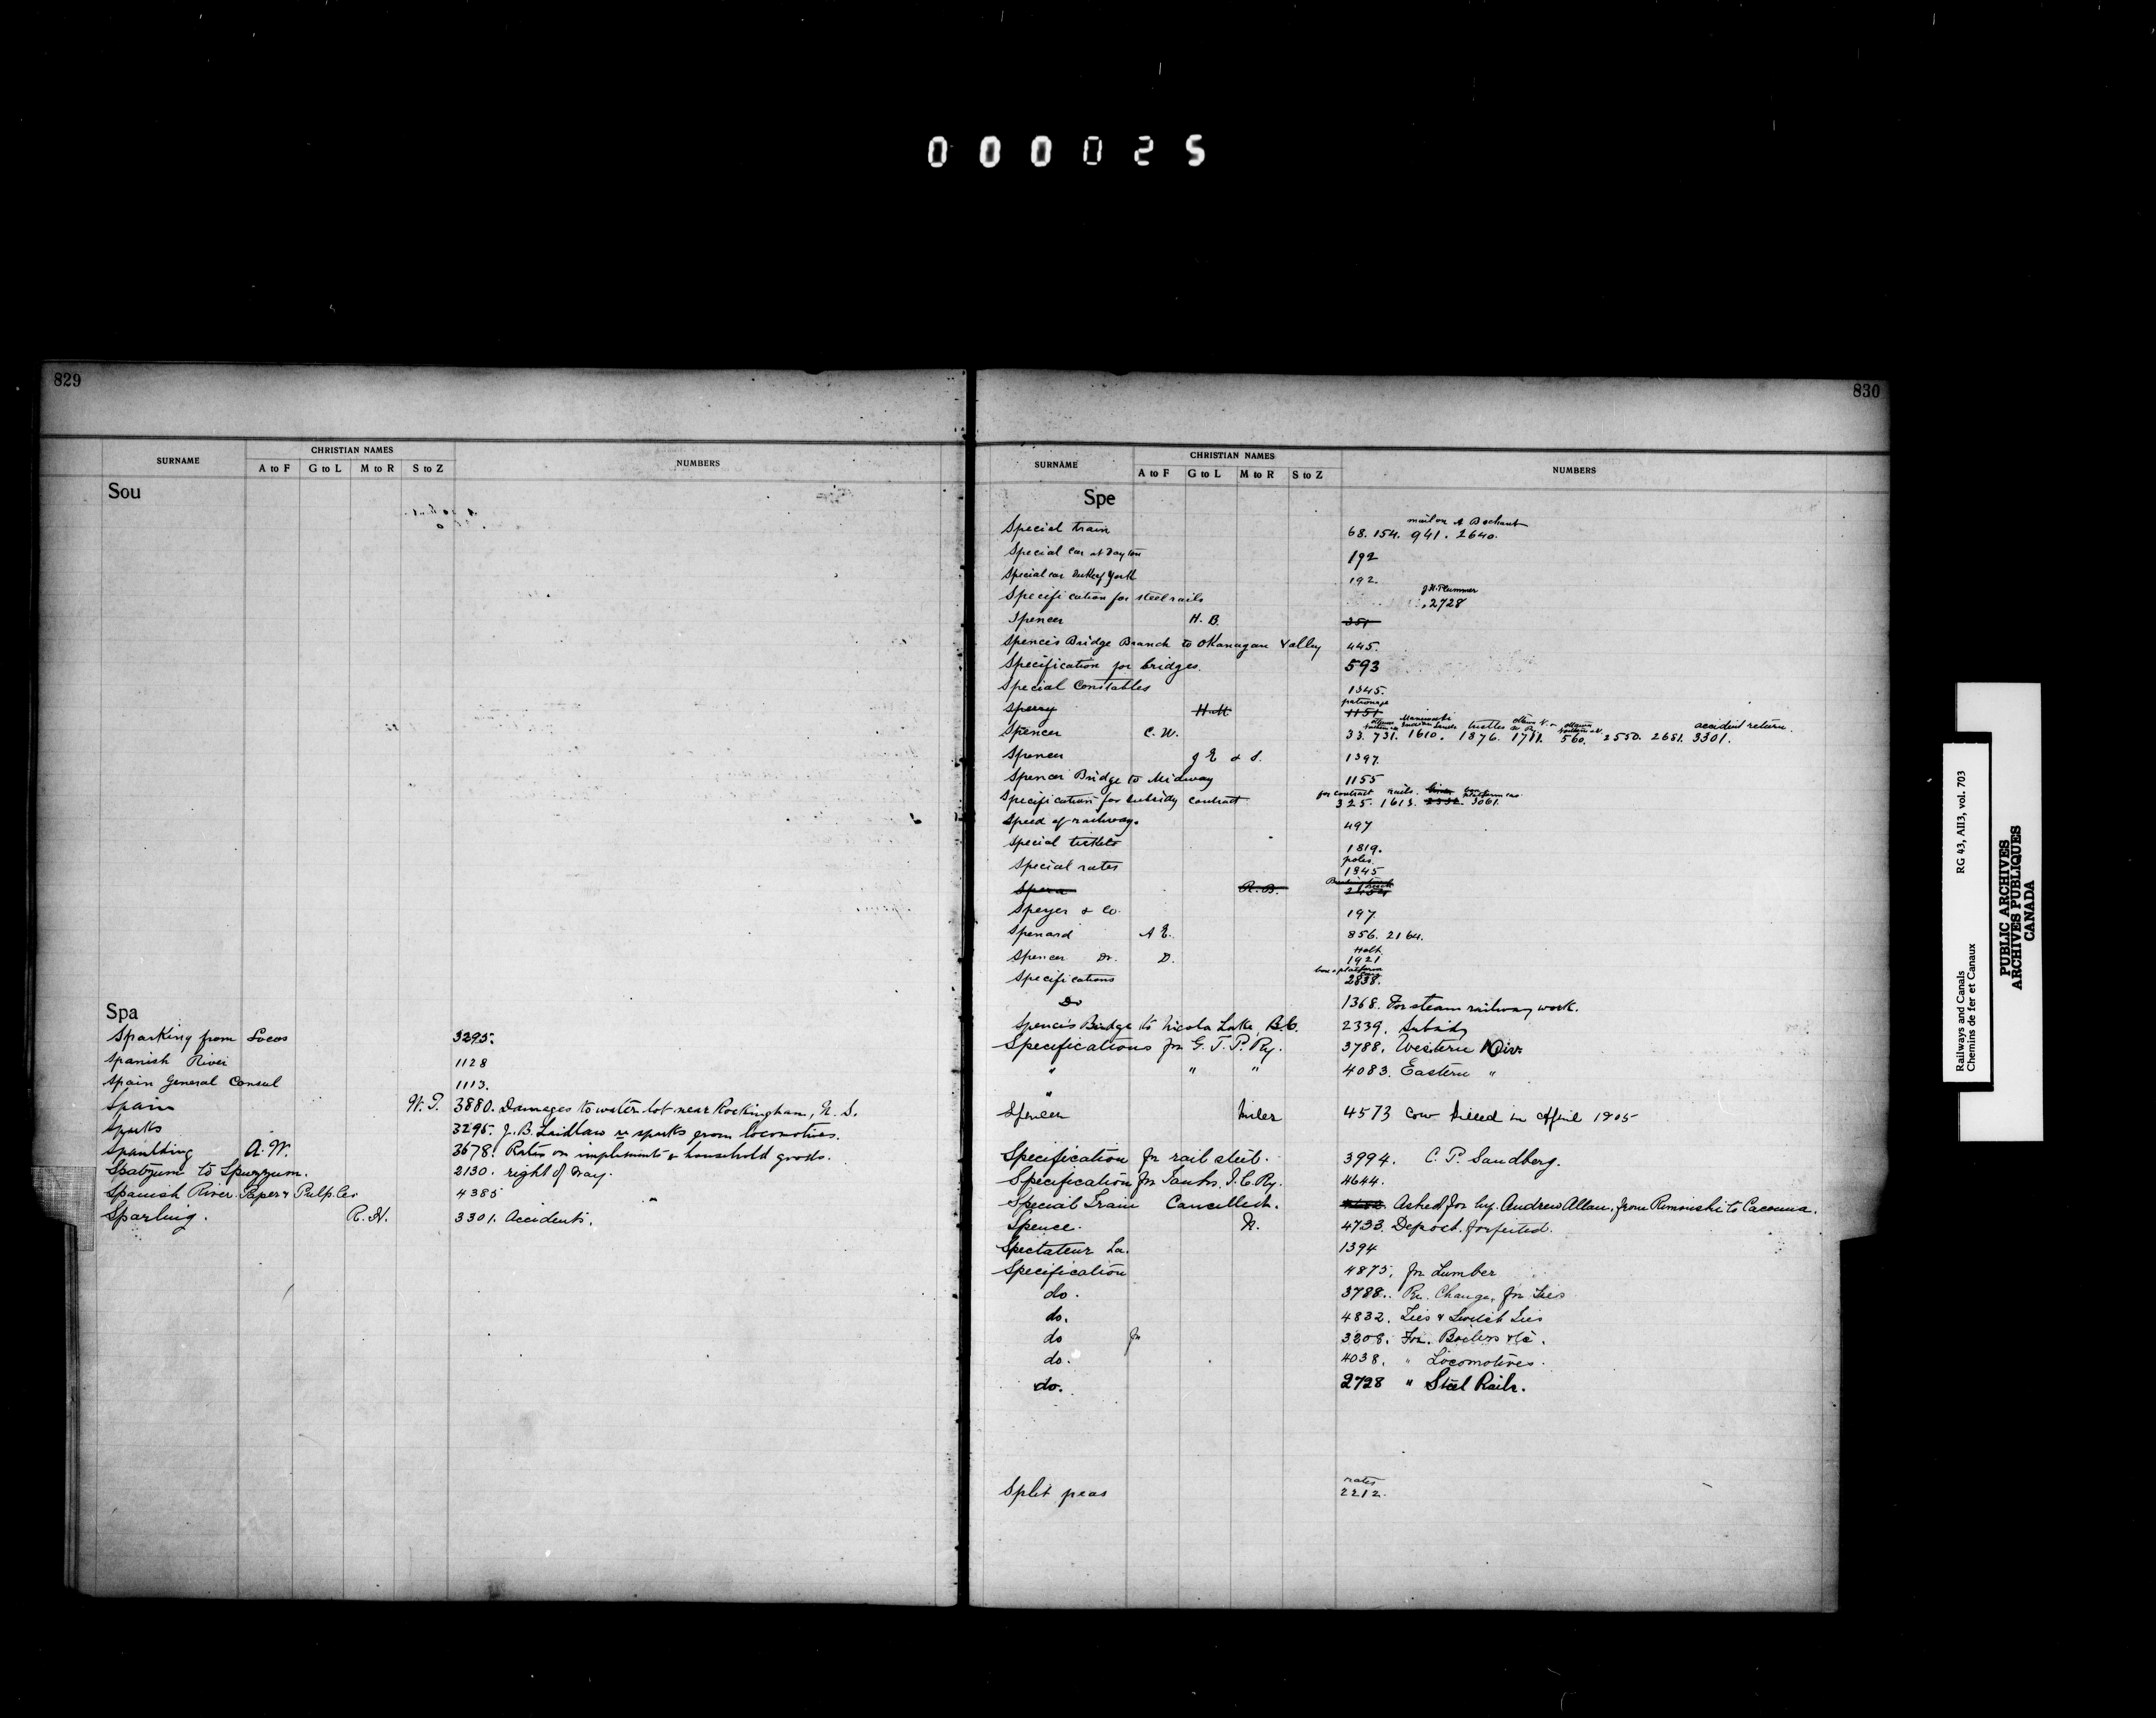 000025
829
SURNAME CHRISTIAN NAMES NUMBERS
A to F G to L M to R S to Z
Sou
Spa
Sparking from Locos 3295.
Spanish River 1128
Spain General Consul 1113.
Spain W. P. 3880. Damages to water lot near Rockingham, N. S.
Sparks 3295. J. B. Laidlaw re sparks from locomotives.
Spaulding A. W. 3678. Rates on implements & household goods.
to Spuzzum. 2130. right of way.
Spanish River Paper & Pulp Co. 4385 "
Sparling. R. H. 3301. Accidents.
830
SURNAME CHRISTIAN NAMES NUMBERS
A to F G to L M to R S to Z
Spe
mail on
Special train 68. 154. 941. 2640.
Special car at Dayton 192
Special car Duke of York 192.
J H Plummer
Specification for steel rails 2728
Spencer H. B. 351
Spence's Bridge Branch to Okanagan Valley 445.
Specification for bridges. 593
Special Constables 1345.
patronage
Sperry H. H. 1151
trestles accident return.
Spencer C. W. 33. 731. 1610. 1876. 1711. 560. 2550. 2651. 3301.
Spencer J E & S. 1397.
Spences Bridge to Midway 1155
for contract rails. platform cars
Specification for subsidy contract 325. 1613. 2332. 3061.
Speed of railways. 497
Special tickets 1819.
poles.
Special rates 1345
R. B.
Speyer & Co. 197.
Spenard A E. 856. 2164.
Holt
Spencer Dr. D. 1921
box & platform cars
Specifications 2838.
Do 1368. For steam railway work.
Spence's Bridge to Nicola Lake, B.C. 2339. Subsidy
Specifications for G. T. P. Ry. 3788. Western Div.
" " " 4083. Eastern "
"
Spencer Miles 4573 Cow killed in April 1905
Specification for rail steel. 3994. C. P. Sandberg.
Specification for Tanks. I. C. Ry. 4644.
Special Train Cancelled. Asked for by Andrew Allan, from Rimouski to Cacouna.
Spence. N. 4733. Deposit forfeited.
Spectateur La. 1394
Specification 4875. for Lumber
do. 3788. Re. Change for Ties
do. 4832. Ties & Switch Ties
do for 3208. For. Boilers &c.
do. 4038. " Locomotives.
do. 2728 " Steel Rails.
rates
Split peas 2212.
Railways and Canals RG 43, AII3, vol. 703
Chemins de fer et Canaux
PUBLIC ARCHIVES
ARCHIVES PUBLIQUES
CANADA